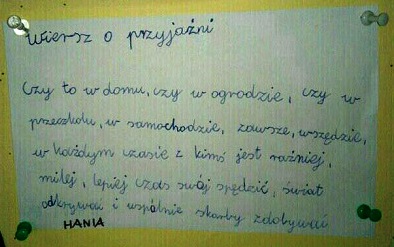 Wiersz o przyjaźni
Czy to w domu, czy w ogrodzie, czy w
przeczkolu, w samochodzie, zawsze, wszędzie,
w każdym czasie z kimś jest raźniej,
milej, lepiej czas swój spędzić, świat
odkrywać i wspólnie skarby zdobywać
HANIA